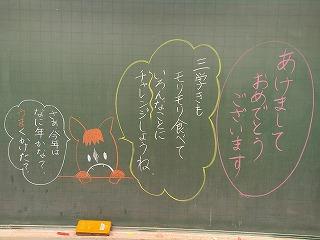 あけまして
おめでとう
ございます
三学きも
モリモリ食べて
いろんなことに
チャレンジしようね
さぁ 今年は
なに年かな?
うまくかけた?